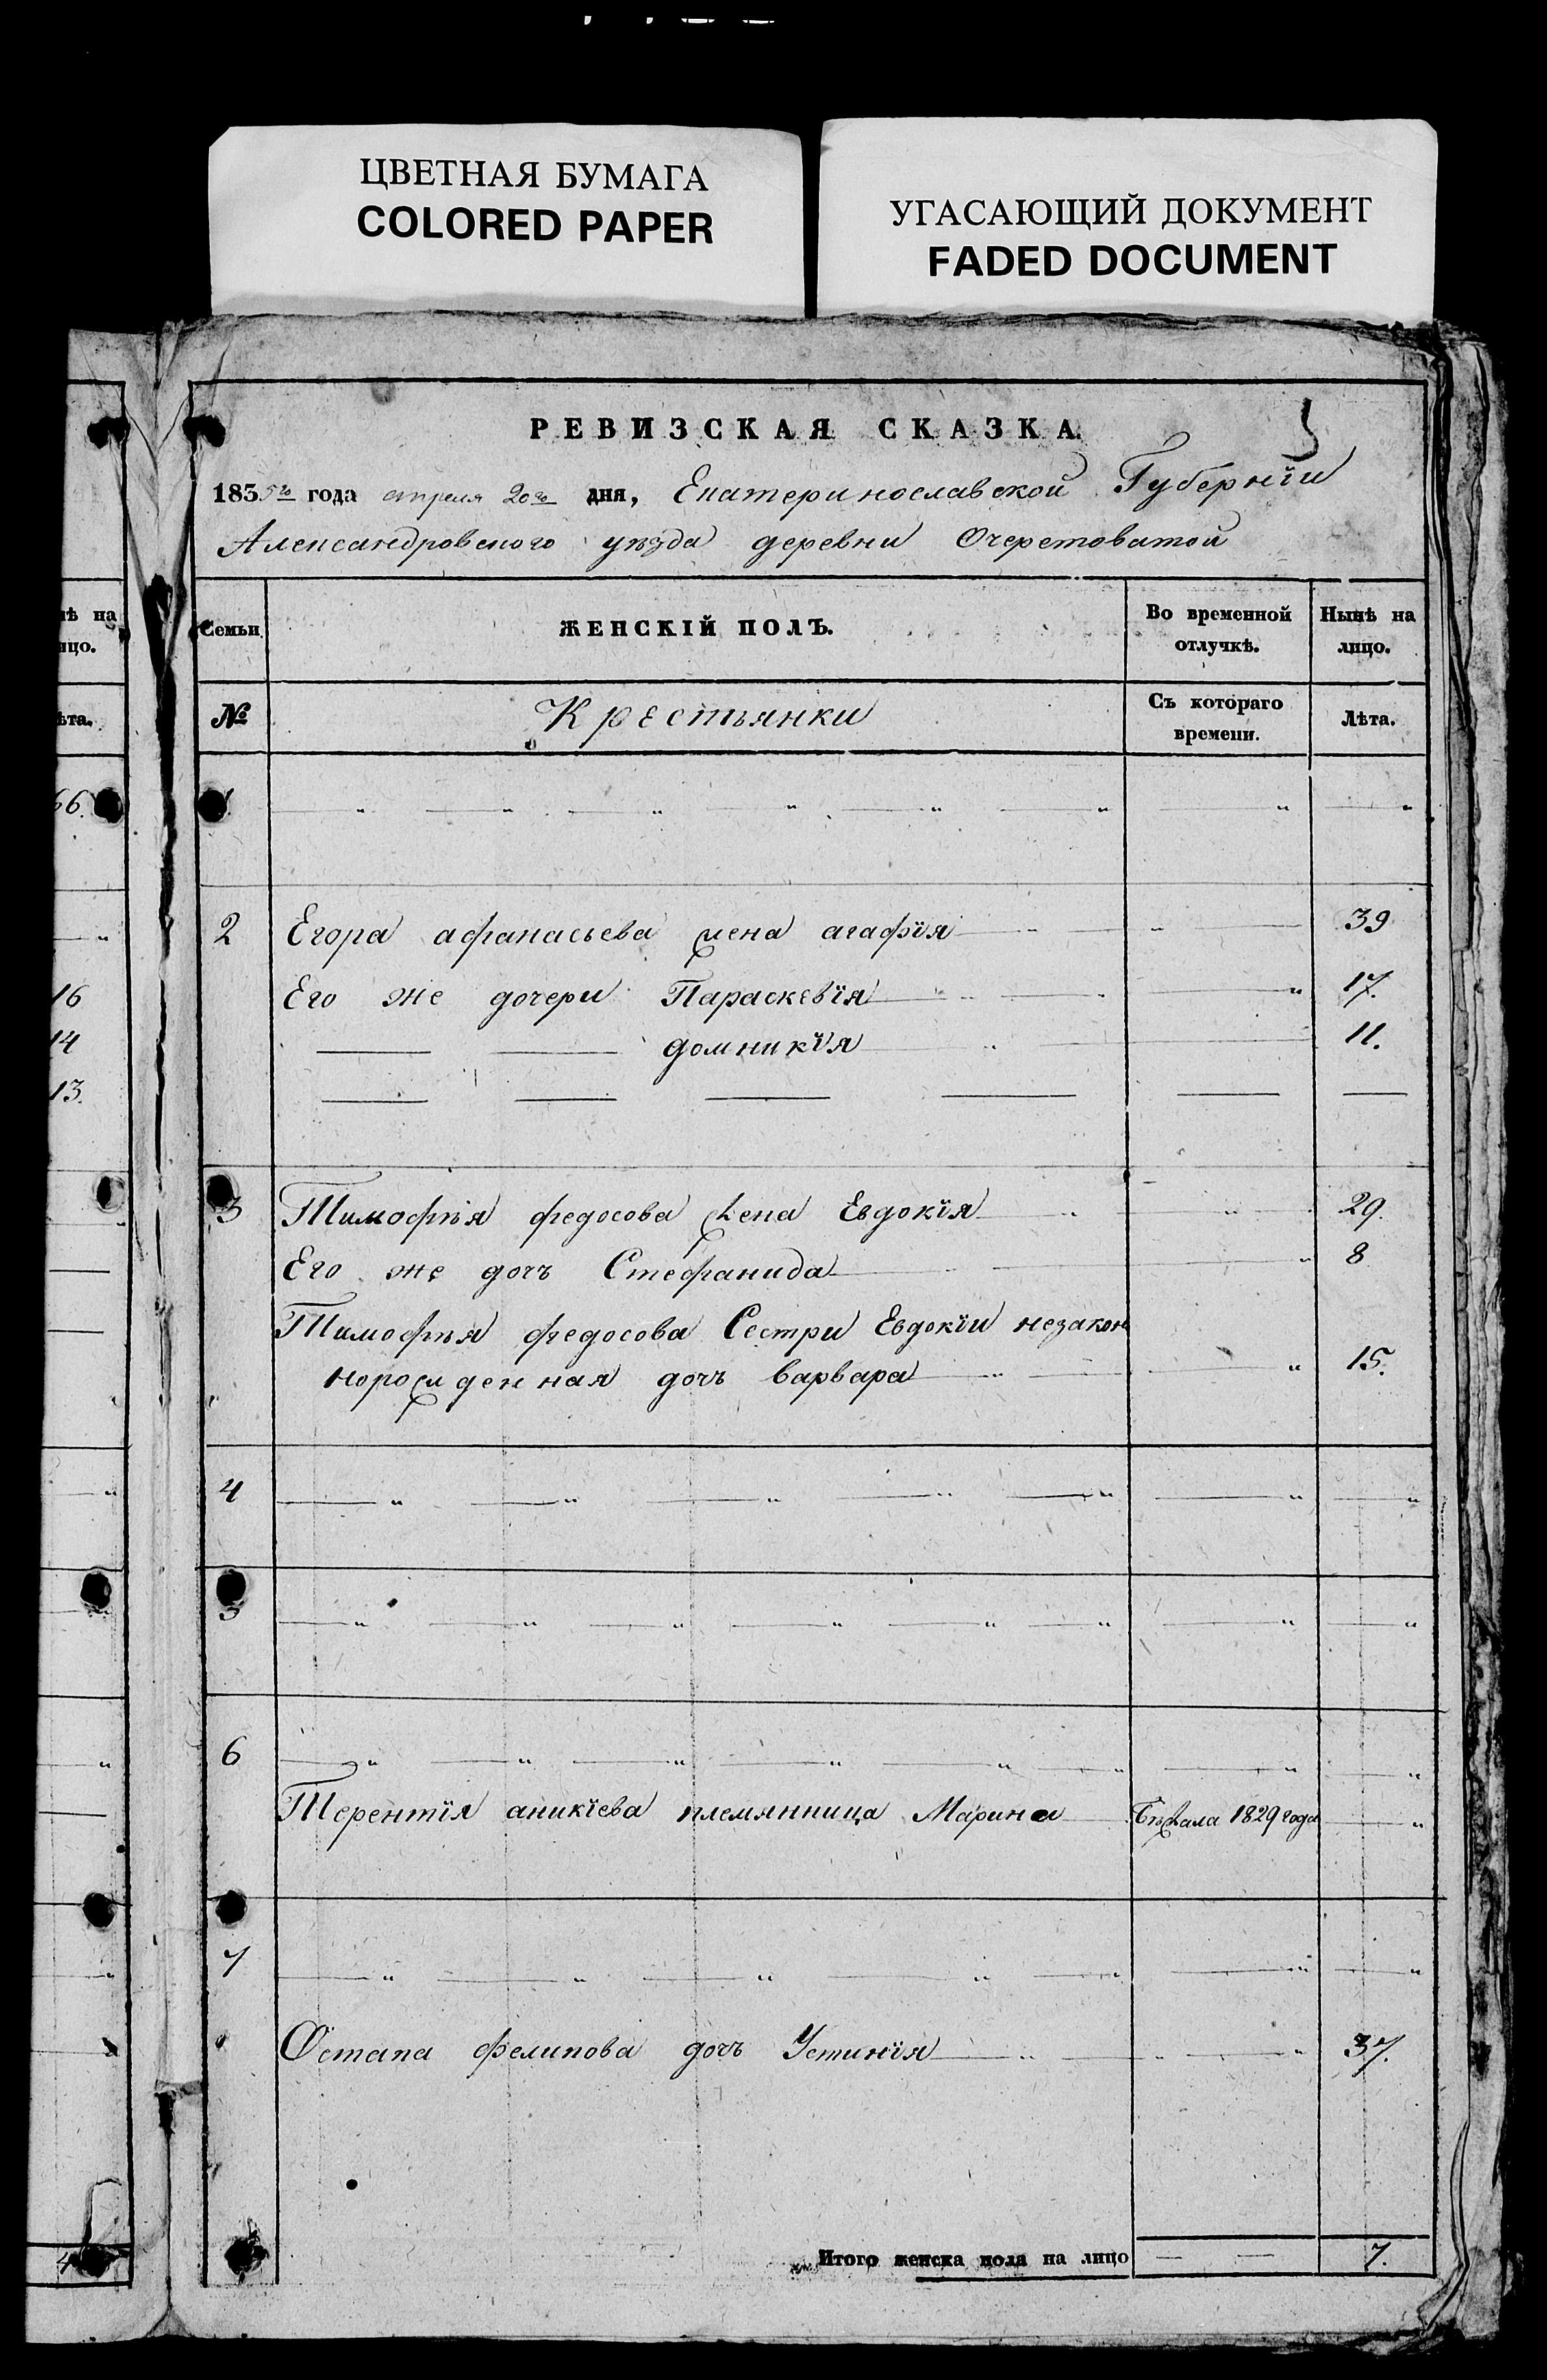 ЦВЕТНАЯ БУМАГА
COLORED PAPER
УГАСАЮЩИЙ ДОКУМЕНТ
FADED DOCUMENT
РЕВИЗСКАЯ СКАЗКА.
1835го года апреля 20го дня, Екатеринославской Губернїи
Александровского уѣзда деревни Очеретоватой
нѣ на
ицо.
Семьи
ЖЕНСКІЙ ПОЛЪ.
Во временной отлучкѣ.
Нынѣ на лицо.
ѣта.
№
Крестьянки
Съ котораго времени.
Лѣта.
66.
1
2 Егора афанасьева жена агафїя 39
16 Его же дочери Параскевїя 17.
14 домникїя 11.
13.
3 Тимофѣя федосова жена Евдокїя 29.
Его же дочъ Стефанида 8
Тимофѣя федосова Сестри Евдокїи незакон
норожденная дочъ варвара 15.
4
5
6
Терентїя аникїева племянница Марина Бѣжала 1829 года
7
Остапа фелипова дочъ Устинїя 37.
4
Итого женска пола на лицо 7.